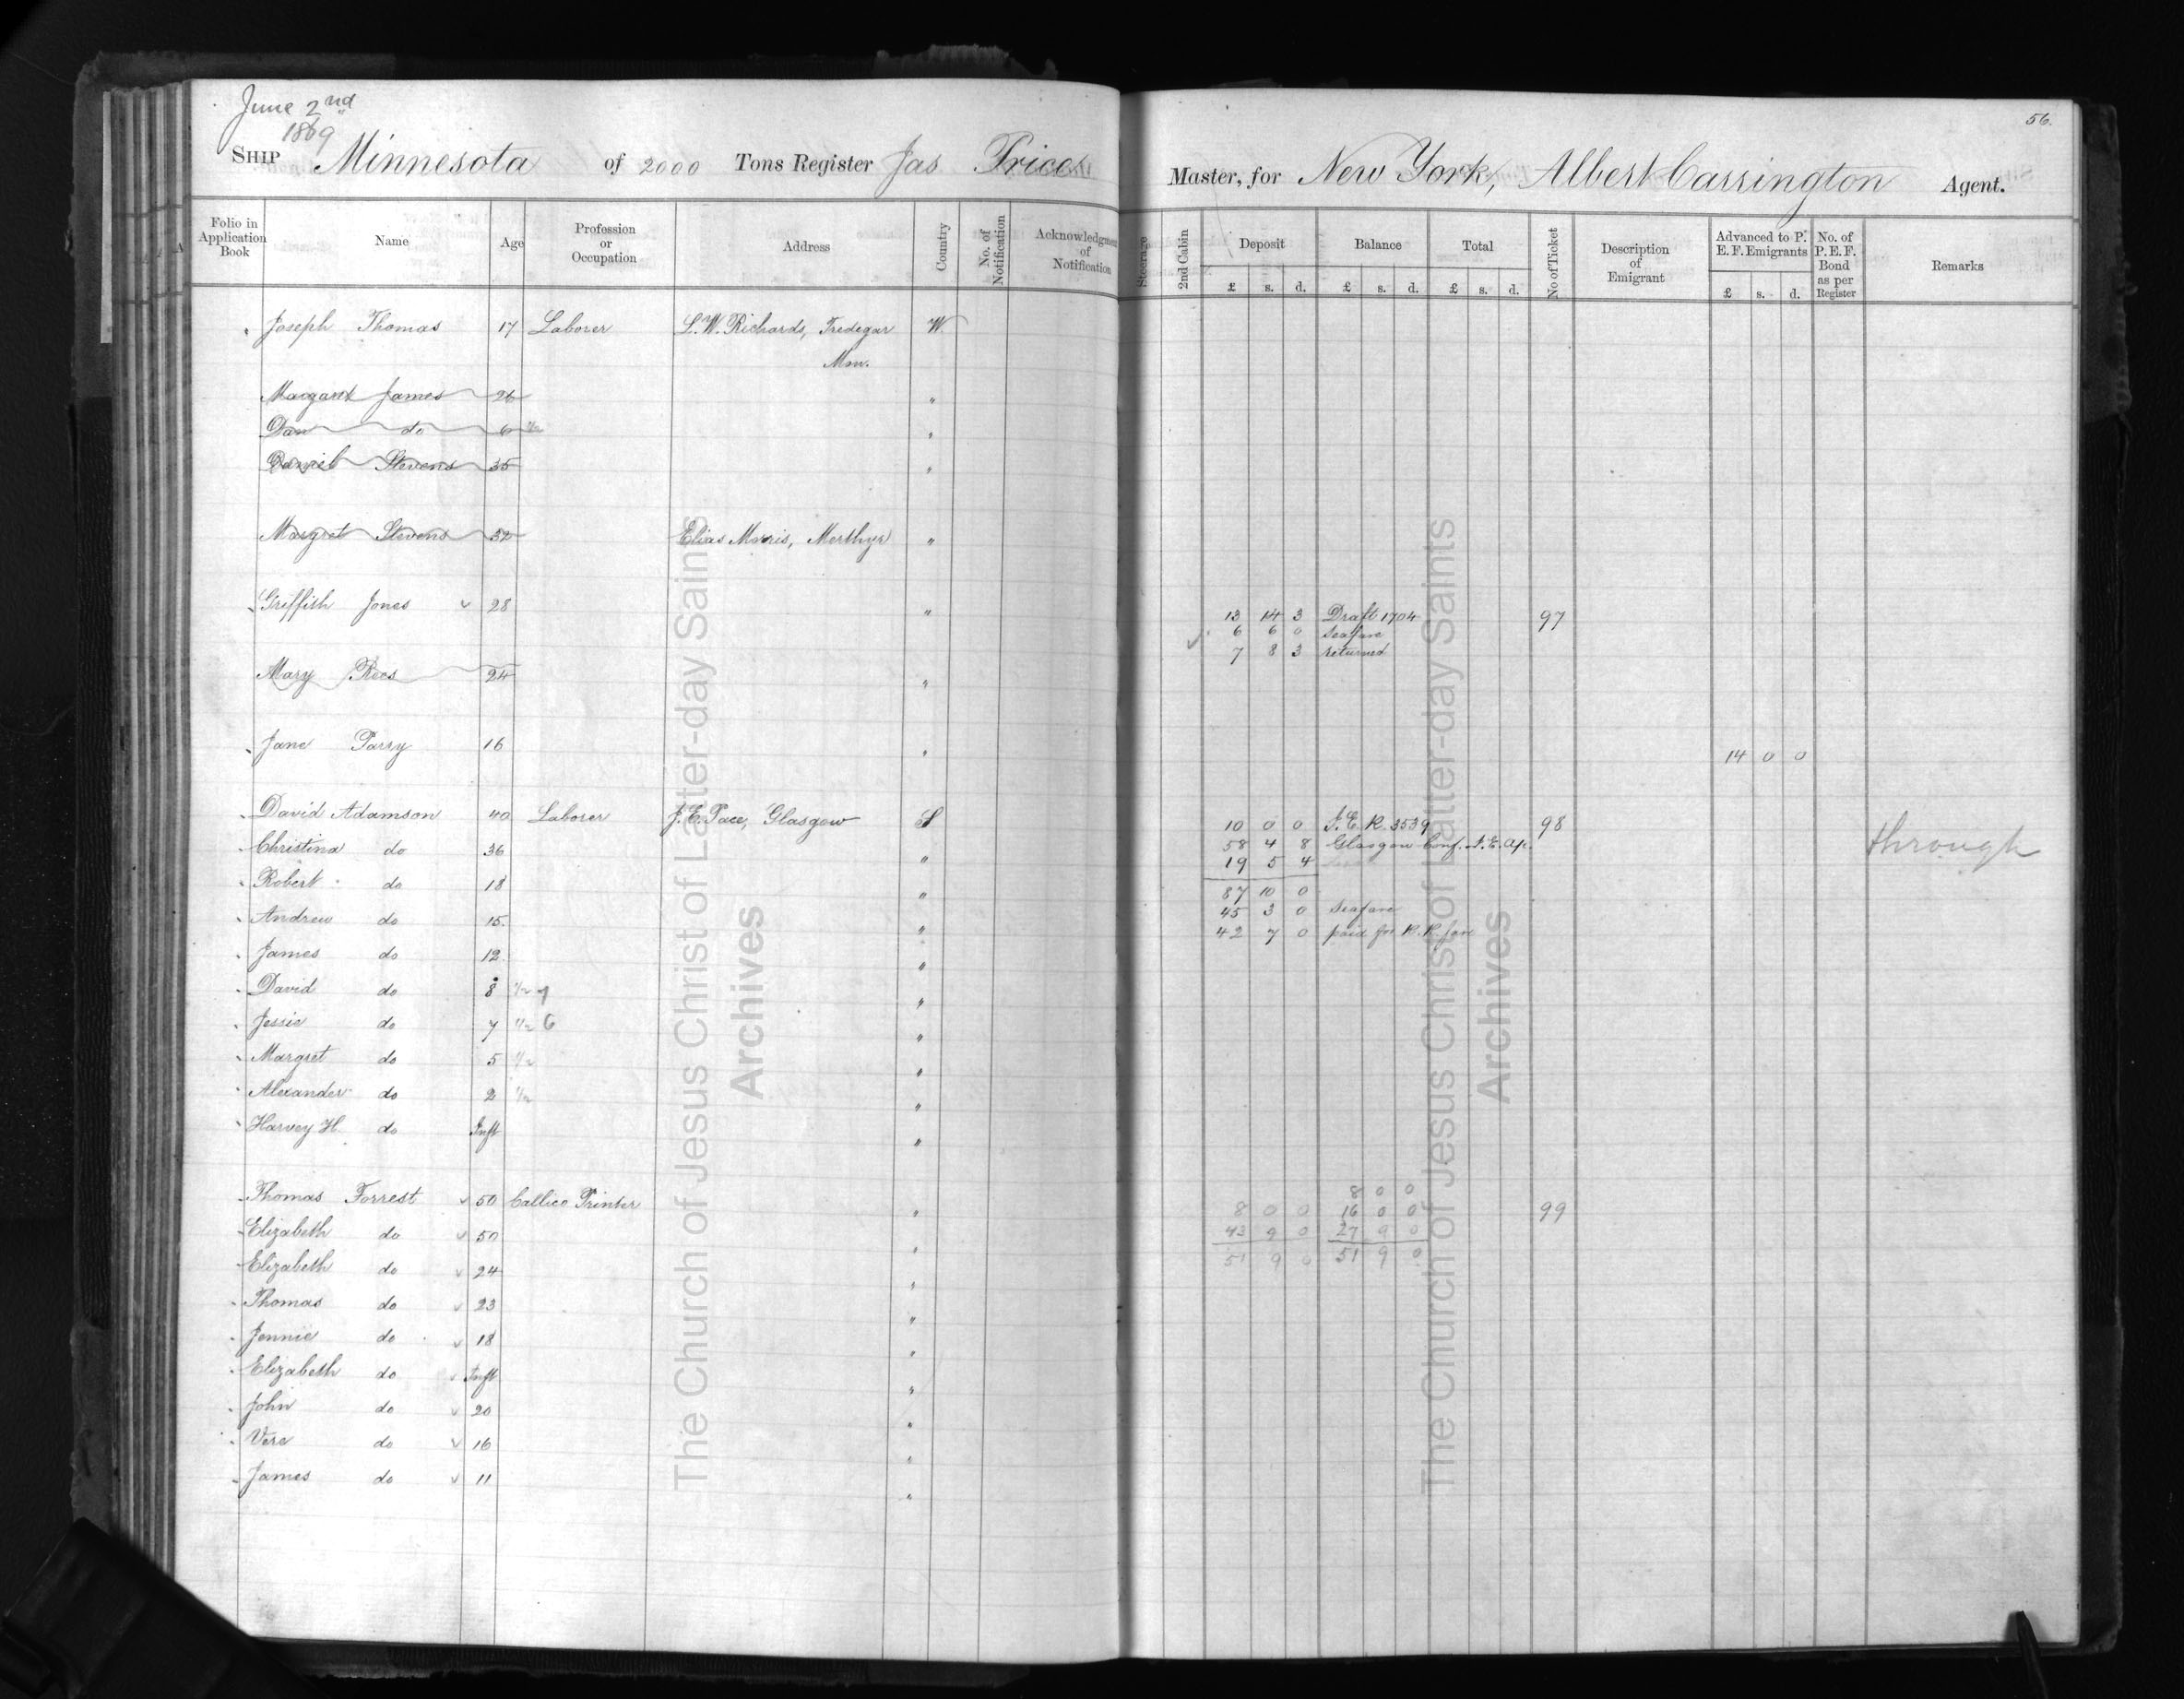 June 2nd
1869
56.
SHIP Minnesota of 2000 Tons Register Jas Price Master, for New York, Albert Carrington Agent.
Folio in Application Book Name Age Profession or Occupation Address Country No. of Notification Acknowledgment of Notification Steerage 2nd Cabin Deposit Balance Total No of Ticket Description of Emigrant Advanced to P. E. F. Emigrants No. of P. E. F. Bond as per Register Remarks
£ s. d. £ s. d. £ s. d. £ s. d.
Joseph Thomas 17 Laborer L. W. Richards, Tredegar W.
Mon.
Margaret James 26 "
Dan do 6 1/2 "
Daniel Stevens 35 "
Margret Stevens 32 Elias Morris, Merthyr "
Griffith Jones 28 " 13 14 3 Draft 1704 97
6 6 0 Seafare
7 8 3 returned
Mary Rees 24 "
Jane Parry 16 " 14 0 0
David Adamson 40 Laborer J. E. Pace, Glasgow S 10 0 0 I. E. R. 3539 98
Christina do 36 " 58 4 8 Glasgow Conf. I. E. a/c. through
19 5 4
Robert do 18 " 87 10 0
Andrew do 15. " 45 3 0 Seafare
42 7 0 paid for R. R. fare
James do 12. "
David do 8 1/2 9 "
Jessie do 7 1/2 6 "
Margret do 5 1/2 "
Alexander do 2 1/2 "
Harvey H. do Inft "
8 0 0
Thomas Forrest 50 Callico Printer " 8 0 0 16 0 0 99
Elizabeth do 50 " 43 9 0 27 9 0
Elizabeth do 24 " 51 9 0 51 9 0
Thomas do 23 "
Jennie do 18 "
Elizabeth do Inft "
John do 20 "
Vere do 16 "
James do 11 "
The Church of Jesus Christ of Latter-day Saints
Archives
The Church of Jesus Christ of Latter-day Saints
Archives